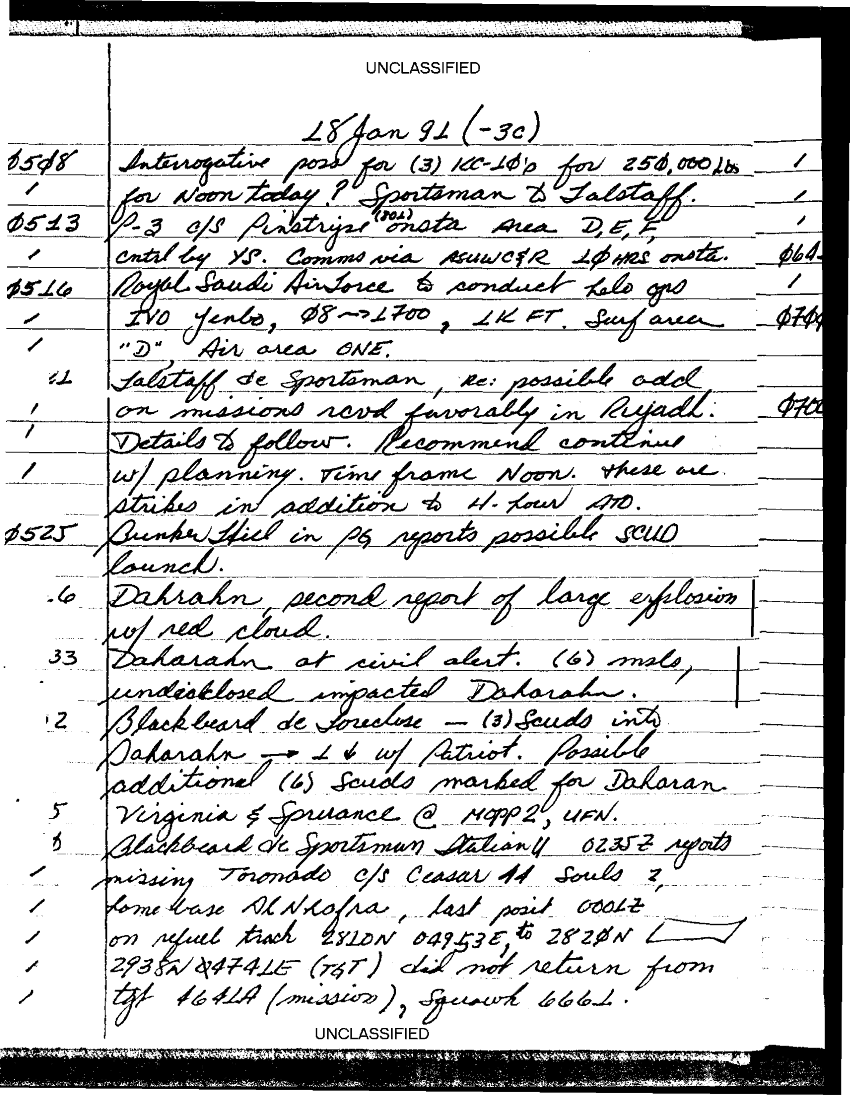 UNCLASSIFIED
18 Jan 91 (-3C)
Ø5Ø8 Interrogative poss for (3) KC-1Ø's for 25Ø,ØØØ Lbs /
/ for Noon today? Sportsman to Falstaff. /
Ø513 P-3 c/s Pinstripe (801) onsta Area D, E, F, /
/ cntrl by YS. Comms via ASUWC&R 1Ø HRS onsta. Ø64
Ø516 Royal Saudi AirForce to conduct helo ops /
/ IVO Yenbo, Ø8→17ØØ, 1K FT. Surf area Ø7Ø
/ "D", Air area ONE.
11 Falstaff de Sportsman, Re: possible add
/ on missions rcvd favorably in Riyadh. Ø7Ø
/ Details to follow. Recommend continue
/ w/ planning. Time frame Noon. These are
strikes in addition to 4-hour ATO.
Ø525 Bunker Hill in PG reports possible SCUD
launch.
.6 Dahrahn, second report of large explosion
w/ red cloud.
33 Daharahn at civil alert. (6) msls,
undisclosed impacted Daharahn.
12 Blackbeard de Foreclose — (3) Scuds into
Daharahn → 1 ↓ w/ Patriot. Possible
additional (6) Scuds marked for Daharan.
5 Virginia & Spruance @ MOPP2, UFN.
Blackbeard de Sportsman 0235Z reports
/ missing Toronado c/s Ceasar 44 Souls 2,
/ home base last posit 0001Z
/ on refuel track 281ØN 04953E, to 282ØN
/ 2938N Ø4741E (TGT) did not return from
/ tgt 4641A (mission), Squawk 6661.
UNCLASSIFIED